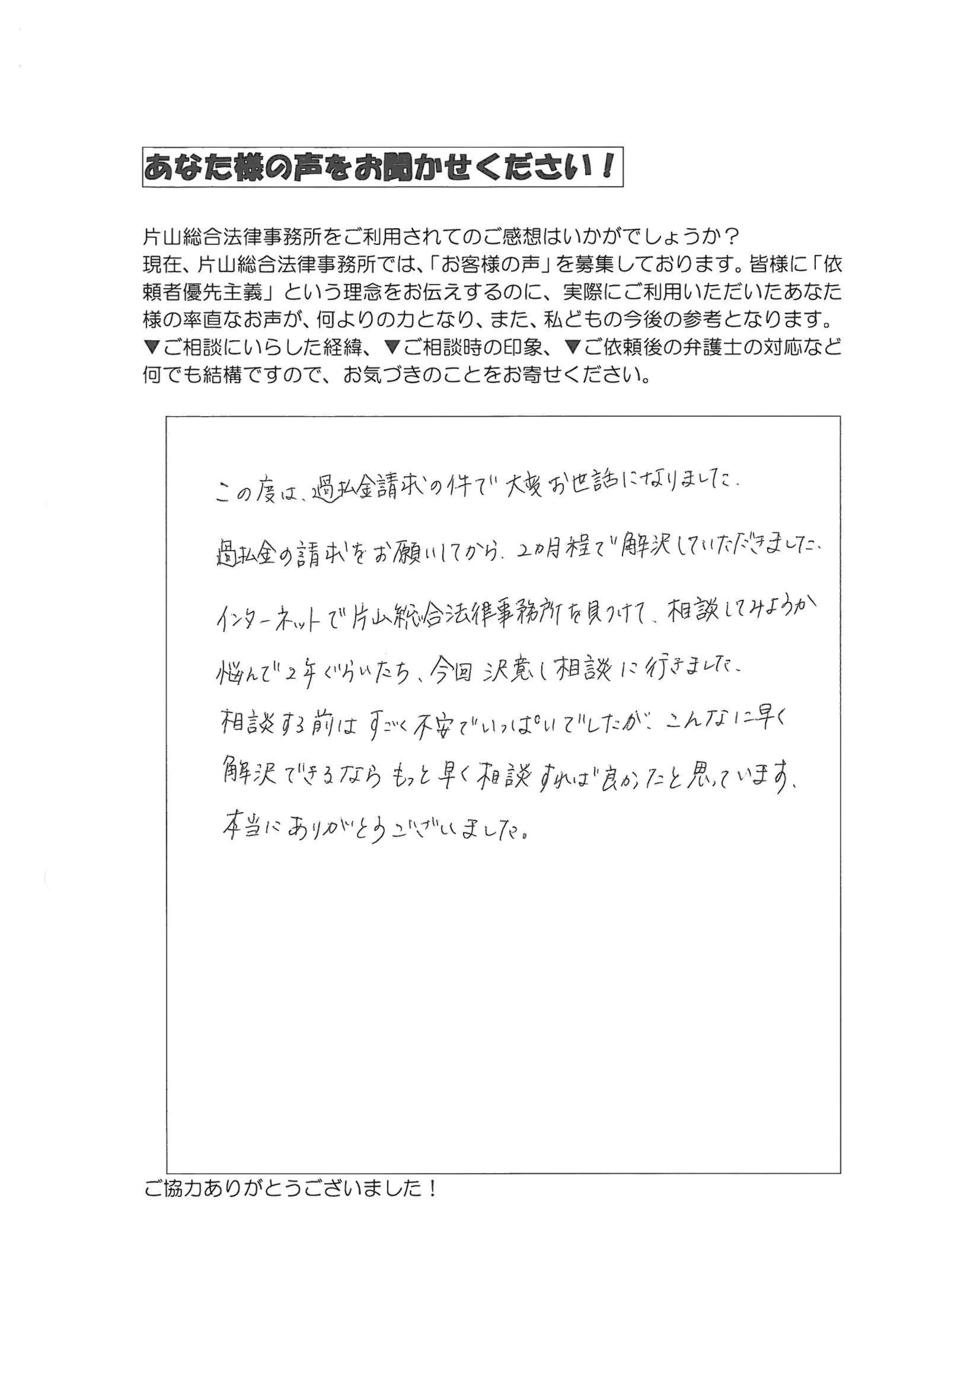 あなた様の声をお聞かせください！
片山総合法律事務所をご利用されてのご感想はいかがでしょうか？
現在、片山総合法律事務所では、「お客様の声」を募集しております。皆様に「依
頼者優先主義」という理念をお伝えするのに、実際にご利用いただいたあなた
様の率直なお声が、何よりの力となり、また、私どもの今後の参考となります。
▼ご相談にいらした経緯、▼ご相談時の印象、▼ご依頼後の弁護士の対応など
何でも結構ですので、お気づきのことをお寄せください。
この度は、過払金請求の件で大変お世話になりました。
過払金の請求をお願いしてから、2ヵ月程で解決していただきました。
インターネットで片山総合法律事務所を見つけて、相談してみようか
悩んで2年ぐらいたち、今回決意し相談に行きました。
相談する前はすごく不安でいっぱいでしたが、こんなに早く
解決できるならもっと早く相談すれば良かったと思っています。
本当にありがとうございました。
ご協力ありがとうございました！